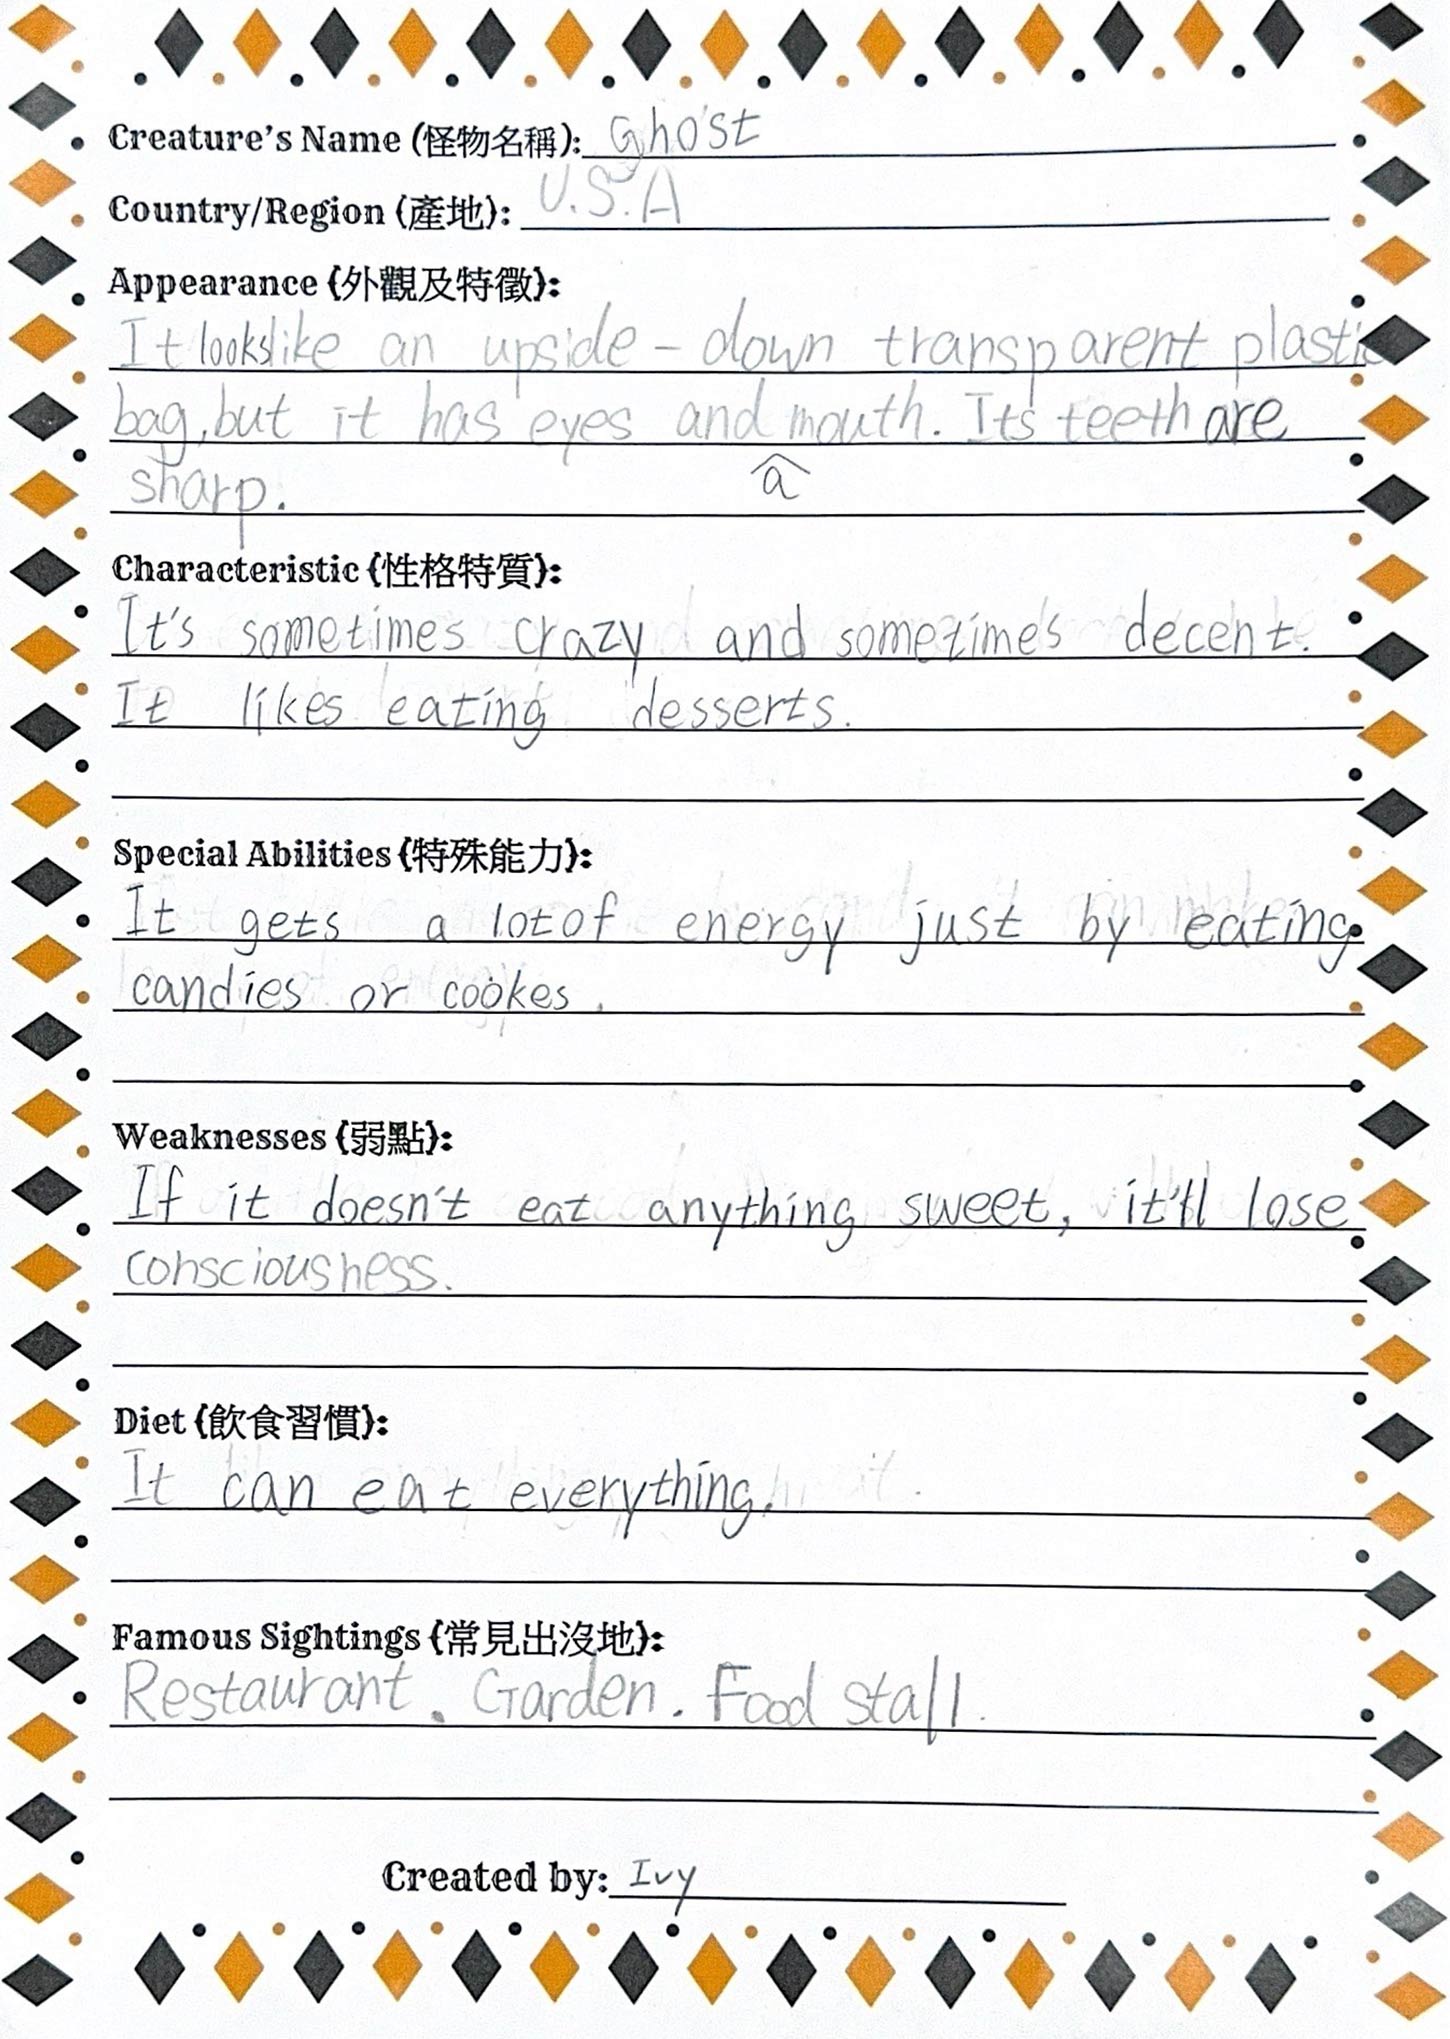 Creature's Name (怪物名稱): Ghost
Country/Region (產地): U.S.A
Appearance (外觀及特徵):
It looks like an upside-down transparent plastic
bag, but it has eyes and mouth. Its teeth are
a
sharp.
Characteristic (性格特質):
It's sometimes crazy and sometimes decent.
It likes eating desserts.
Special Abilities (特殊能力):
It gets a lot of energy just by eating
candies or cookes.
Weaknesses (弱點):
If it doesn't eat anything sweet, it'll lose
consciousness.
Diet (飲食習慣):
It can eat everything.
Famous Sightings (常見出沒地):
Restaurant. Garden. Food stall.
Created by: Ivy